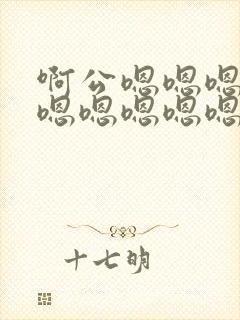 啊公嗯嗯嗯
嗯嗯嗯嗯嗯
十七明